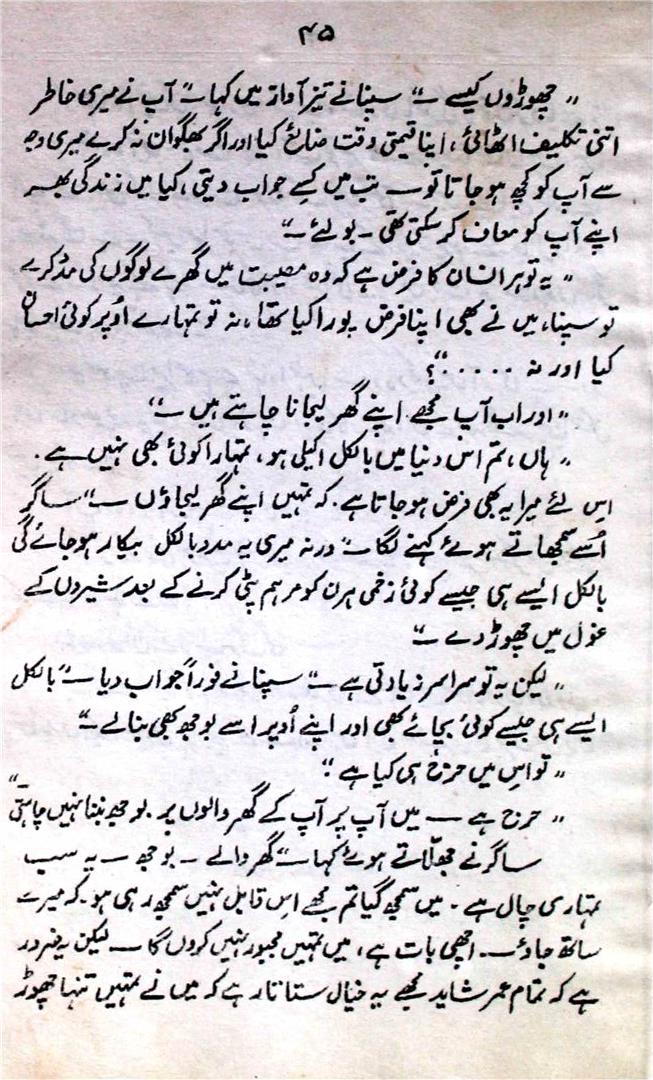 ۴۵
”چھوڑوں کیسے —“ سپنا نے تیز آواز میں کہا —“ آپ نے میری خاطر
اتنی تکلیف اٹھائی، اپنا قیمتی وقت ضائع کیا اور اگر بھگوان نہ کرے میری وجہ
سے آپ کو کچھ ہو جاتا تو — تب میں کسے جواب دیتی، کیا میں زندگی بھر
اپنے آپ کو معاف کر سکتی تھی ۔ بولئے —“
”یہ تو ہر انسان کا فرض ہے کہ وہ مصیبت میں گھرے لوگوں کی مدد کرے
تو سپنا، میں نے بھی اپنا فرض پورا کیا تھا، نہ تو تمہارے اُوپر کوئی احسان
کیا اور نہ ۔۔۔۔۔“؟
”اور اب آپ مجھے اپنے گھر لیجانا چاہتے ہیں —“
”ہاں، تم اس دنیا میں بالکل اکیلی ہو، تمہارا کوئی بھی نہیں ہے ۔
اس لئے میرا یہ بھی فرض ہو جاتا ہے ۔ کہ تمہیں اپنے گھر لیجاؤں —“ ساگر
اُسے سمجھاتے ہوئے کہنے لگا —“ ورنہ میری یہ مدد بالکل بیکار ہو جائے گی
بالکل ایسے ہی جیسے کوئی زخمی ہرن کو مرہم پٹی کرنے کے بعد شیروں کے
غول میں چھوڑ دے —“
”لیکن یہ تو سراسر زیادتی ہے —“ سپنا نے فوراً جواب دیا —“ بالکل
ایسے ہی جیسے کوئی بچائے بھی اور اپنے اُوپر اسے بوجھ بھی بنا لے —“
”تو اس میں حرج ہی کیا ہے“؛
”حرج ہے — میں آپ پر آپ کے گھر والوں پر بوجھ بننا نہیں چاہتی —“
ساگر نے جھلّاتے ہوئے کہا —“ گھر والے ۔ بوجھ — یہ سب
تمہاری چال ہے ۔ میں سمجھ گیا تم مجھے اس قابل نہیں سمجھ رہی ہو ۔ کہ میرے
ساتھ جاؤ — اچھی بات ہے، میں تمہیں مجبور نہیں کروں گا — لیکن یہ ضرور
ہے کہ تمام عمر شاید مجھے یہ خیال ستاتا رہے کہ میں نے تمہیں تنہا چھوڑ